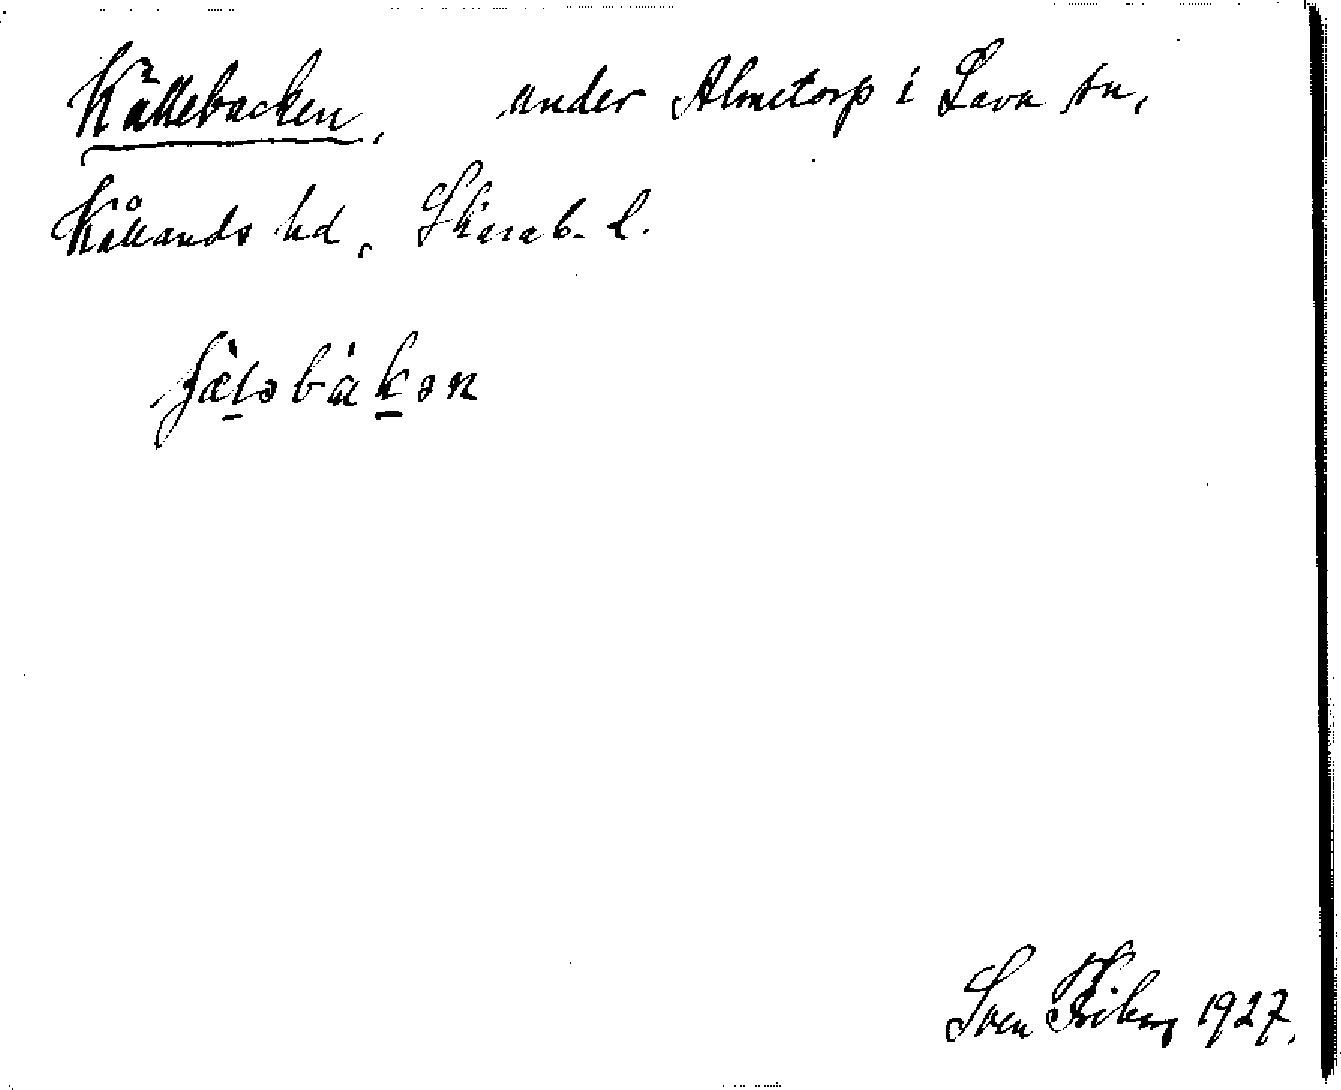 Källebacken, under Almetorp i Lava sn,
Kållands hd, Skarab. L.
ɟæ̀lə bàkən
Sven Friberg 1927.